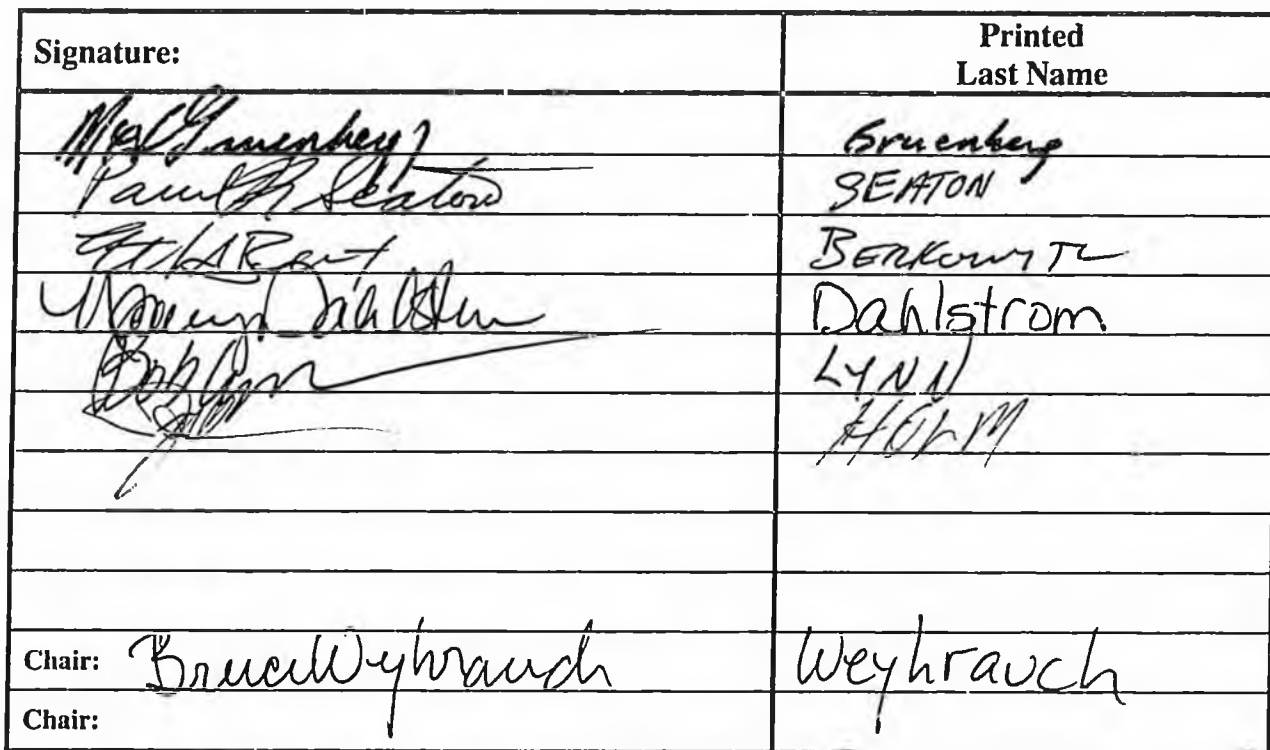 Signature: Printed Last Name
Max Gruenberg Gruenberg
Paul Seaton SEATON
BERKOWITZ
Dahlstrom
Bob Lynn LYNN
HOLM
Chair: Bruce Weyhrauch Weyhrauch
Chair: